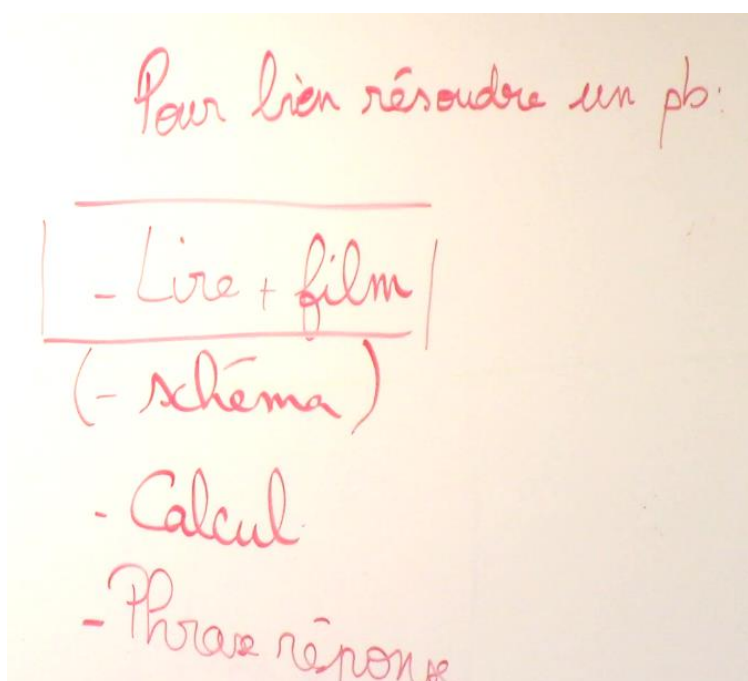 Pour bien résoudre un pb:
- Lire + film
(- schéma)
- Calcul.
- Phrase réponse